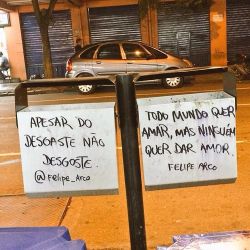 APESAR DO
DESGASTE NÃO
DESGOSTE.
@FELIPE_ARCO
TODO MUNDO QUER
AMAR, MAS NINGUÉM
QUER DAR AMOR.
FELIPE ARCO